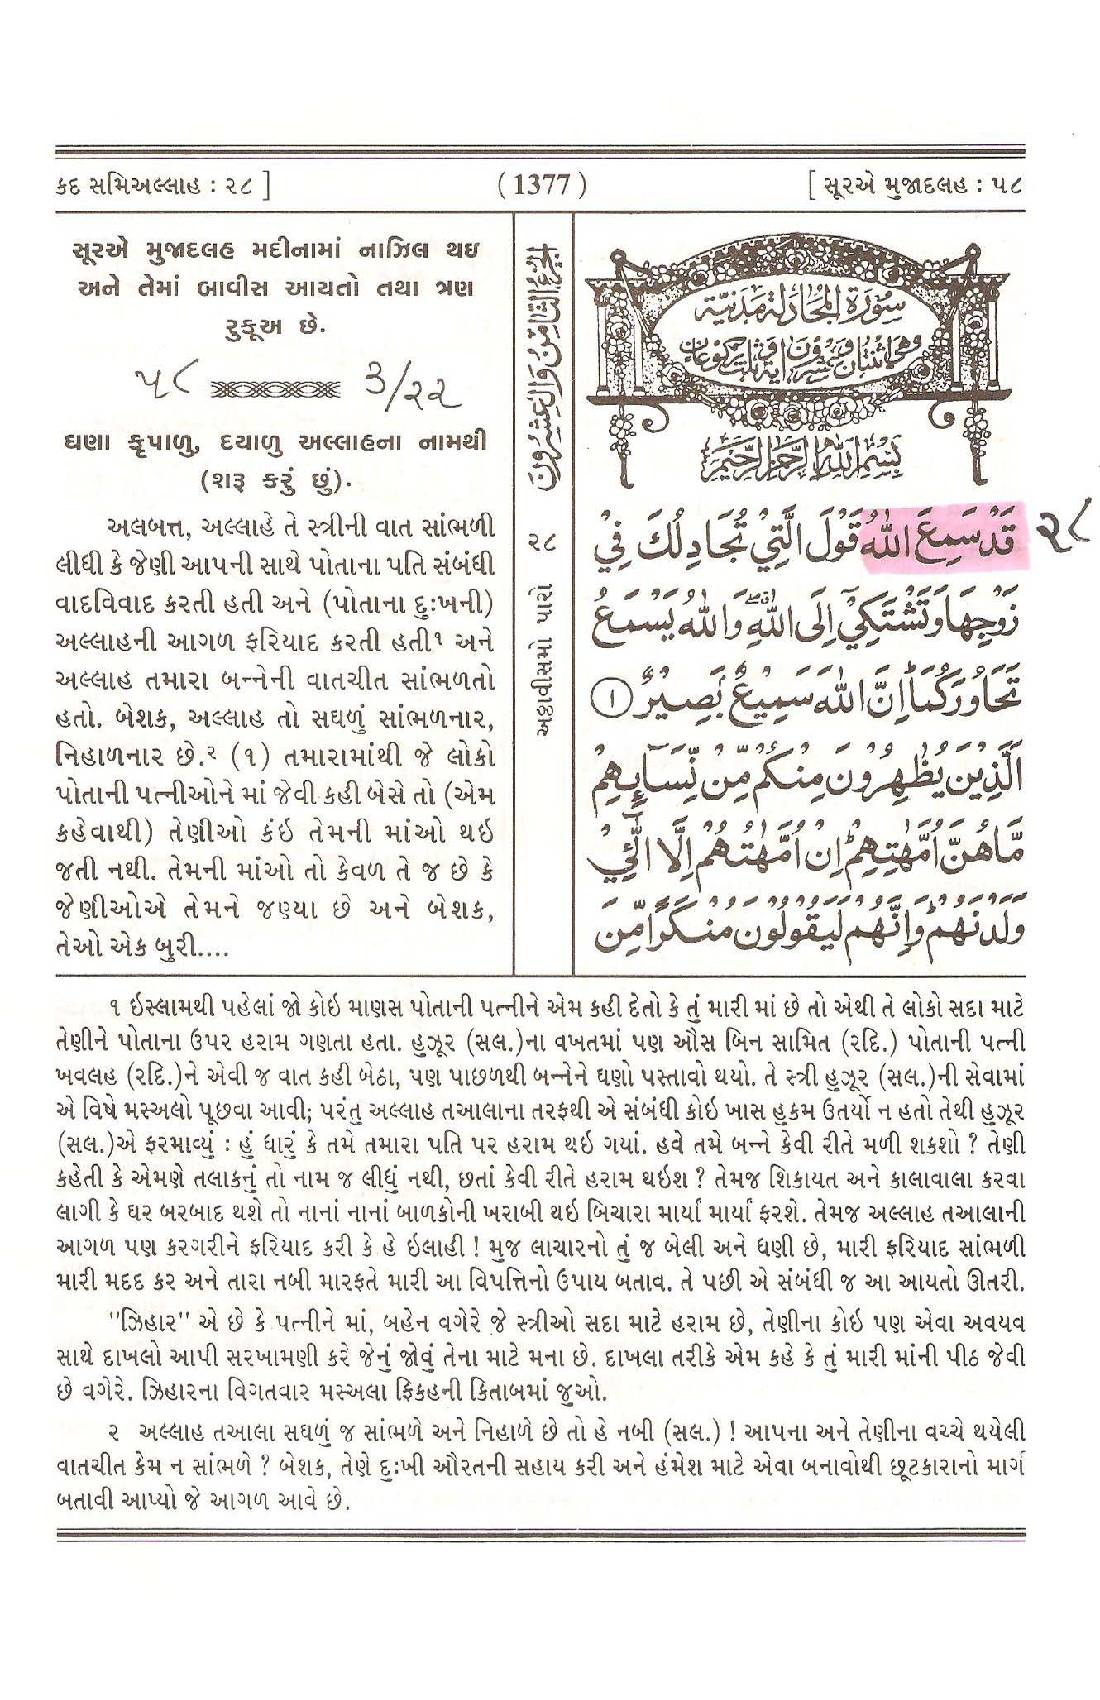 કદ સમિઅલ્લાહ : ૨૮ ]
( 1377 )
[ સૂરએ મુજાદલહ : ૫૮
સૂરએ મુજાદલહ મદીનામાં નાઝિલ થઇ
અને તેમાં બાવીસ આયતો તથા ત્રણ
રુકૂઅ છે.
૫૮ ૩/૨૨
ઘણા કૃપાળુ, દયાળુ અલ્લાહના નામથી
(શરૂ કરું છું).
અલબત્ત, અલ્લાહે તે સ્ત્રીની વાત સાંભળી
લીધી કે જેણી આપની સાથે પોતાના પતિ સંબંધી
વાદવિવાદ કરતી હતી અને (પોતાના દુઃખની)
અલ્લાહની આગળ ફરિયાદ કરતી હતી૧ અને
અલ્લાહ તમારા બન્નેની વાતચીત સાંભળતો
હતો. બેશક, અલ્લાહ તો સઘળું સાંભળનાર,
નિહાળનાર છે.૨ (૧) તમારામાંથી જે લોકો
પોતાની પત્નીઓને માં જેવી કહી બેસે તો (એમ
કહેવાથી) તેણીઓ કંઇ તેમની માંઓ થઇ
જતી નથી. તેમની માંઓ તો કેવળ તે જ છે કે
જેણીઓએ તેમને જણ્યા છે અને બેશક,
તેઓ એક બુરી....
الجزء الثامن والعشرون
૨૮
અઠ્ઠાવીસમો પારો
سُوْرَةُ الْمُجَادَلَة مَدَنِيَّة
وَهِيَ اثْنَتَانِ وَعِشْرُوْنَ اٰيَةً وَّثَلٰثُ رُكُوْعَاتٍ
بِسْمِ اللّٰهِ الرَّحْمٰنِ الرَّحِيْمِ
قَدْ سَمِعَ اللّٰهُ قَوْلَ الَّتِيْ تُجَادِلُكَ فِيْ
૨૮
زَوْجِهَا وَتَشْتَكِيْٓ اِلَى اللّٰهِ ۖ وَاللّٰهُ يَسْمَعُ
تَحَاوُرَكُمَا ؕ اِنَّ اللّٰهَ سَمِيْعٌۢ بَصِيْرٌ ﴿۱﴾
اَلَّذِيْنَ يُظٰهِرُوْنَ مِنْكُمْ مِّنْ نِّسَآىِٕهِمْ
مَّا هُنَّ اُمَّهٰتِهِمْ ؕ اِنْ اُمَّهٰتُهُمْ اِلَّا الّٰٓـِٔيْ
وَلَدْنَهُمْ ؕ وَاِنَّهُمْ لَيَقُوْلُوْنَ مُنْكَرًا مِّنَ
૧ ઇસ્લામથી પહેલાં જો કોઇ માણસ પોતાની પત્નીને એમ કહી દેતો કે તું મારી માં છે તો એથી તે લોકો સદા માટે
તેણીને પોતાના ઉપર હરામ ગણતા હતા. હુઝૂર (સલ.)ના વખતમાં પણ ઔસ બિન સામિત (રદિ.) પોતાની પત્ની
ખવલહ (રદિ.)ને એવી જ વાત કહી બેઠા, પણ પાછળથી બન્નેને ઘણો પસ્તાવો થયો. તે સ્ત્રી હુઝૂર (સલ.)ની સેવામાં
એ વિષે મસ્અલો પૂછવા આવી; પરંતુ અલ્લાહ તઆલાના તરફથી એ સંબંધી કોઇ ખાસ હુકમ ઉતર્યો ન હતો તેથી હુઝૂર
(સલ.)એ ફરમાવ્યું : હું ધારું કે તમે તમારા પતિ પર હરામ થઇ ગયાં. હવે તમે બન્ને કેવી રીતે મળી શકશો ? તેણી
કહેતી કે એમણે તલાકનું તો નામ જ લીધું નથી, છતાં કેવી રીતે હરામ થઇશ ? તેમજ શિકાયત અને કાલાવાલા કરવા
લાગી કે ઘર બરબાદ થશે તો નાનાં નાનાં બાળકોની ખરાબી થઇ બિચારા માર્યા માર્યા ફરશે. તેમજ અલ્લાહ તઆલાની
આગળ પણ કરગરીને ફરિયાદ કરી કે હે ઇલાહી ! મુજ લાચારનો તું જ બેલી અને ધણી છે, મારી ફરિયાદ સાંભળી
મારી મદદ કર અને તારા નબી મારફતે મારી આ વિપત્તિનો ઉપાય બતાવ. તે પછી એ સંબંધી જ આ આયતો ઊતરી.
"ઝિહાર" એ છે કે પત્નીને માં, બહેન વગેરે જે સ્ત્રીઓ સદા માટે હરામ છે, તેણીના કોઇ પણ એવા અવયવ
સાથે દાખલો આપી સરખામણી કરે જેનું જોવું તેના માટે મના છે. દાખલા તરીકે એમ કહે કે તું મારી માંની પીઠ જેવી
છે વગેરે. ઝિહારના વિગતવાર મસ્અલા ફિકહની કિતાબમાં જુઓ.
૨ અલ્લાહ તઆલા સઘળું જ સાંભળે અને નિહાળે છે તો હે નબી (સલ.) ! આપના અને તેણીના વચ્ચે થયેલી
વાતચીત કેમ ન સાંભળે ? બેશક, તેણે દુઃખી ઔરતની સહાય કરી અને હંમેશ માટે એવા બનાવોથી છૂટકારાનો માર્ગ
બતાવી આપ્યો જે આગળ આવે છે.